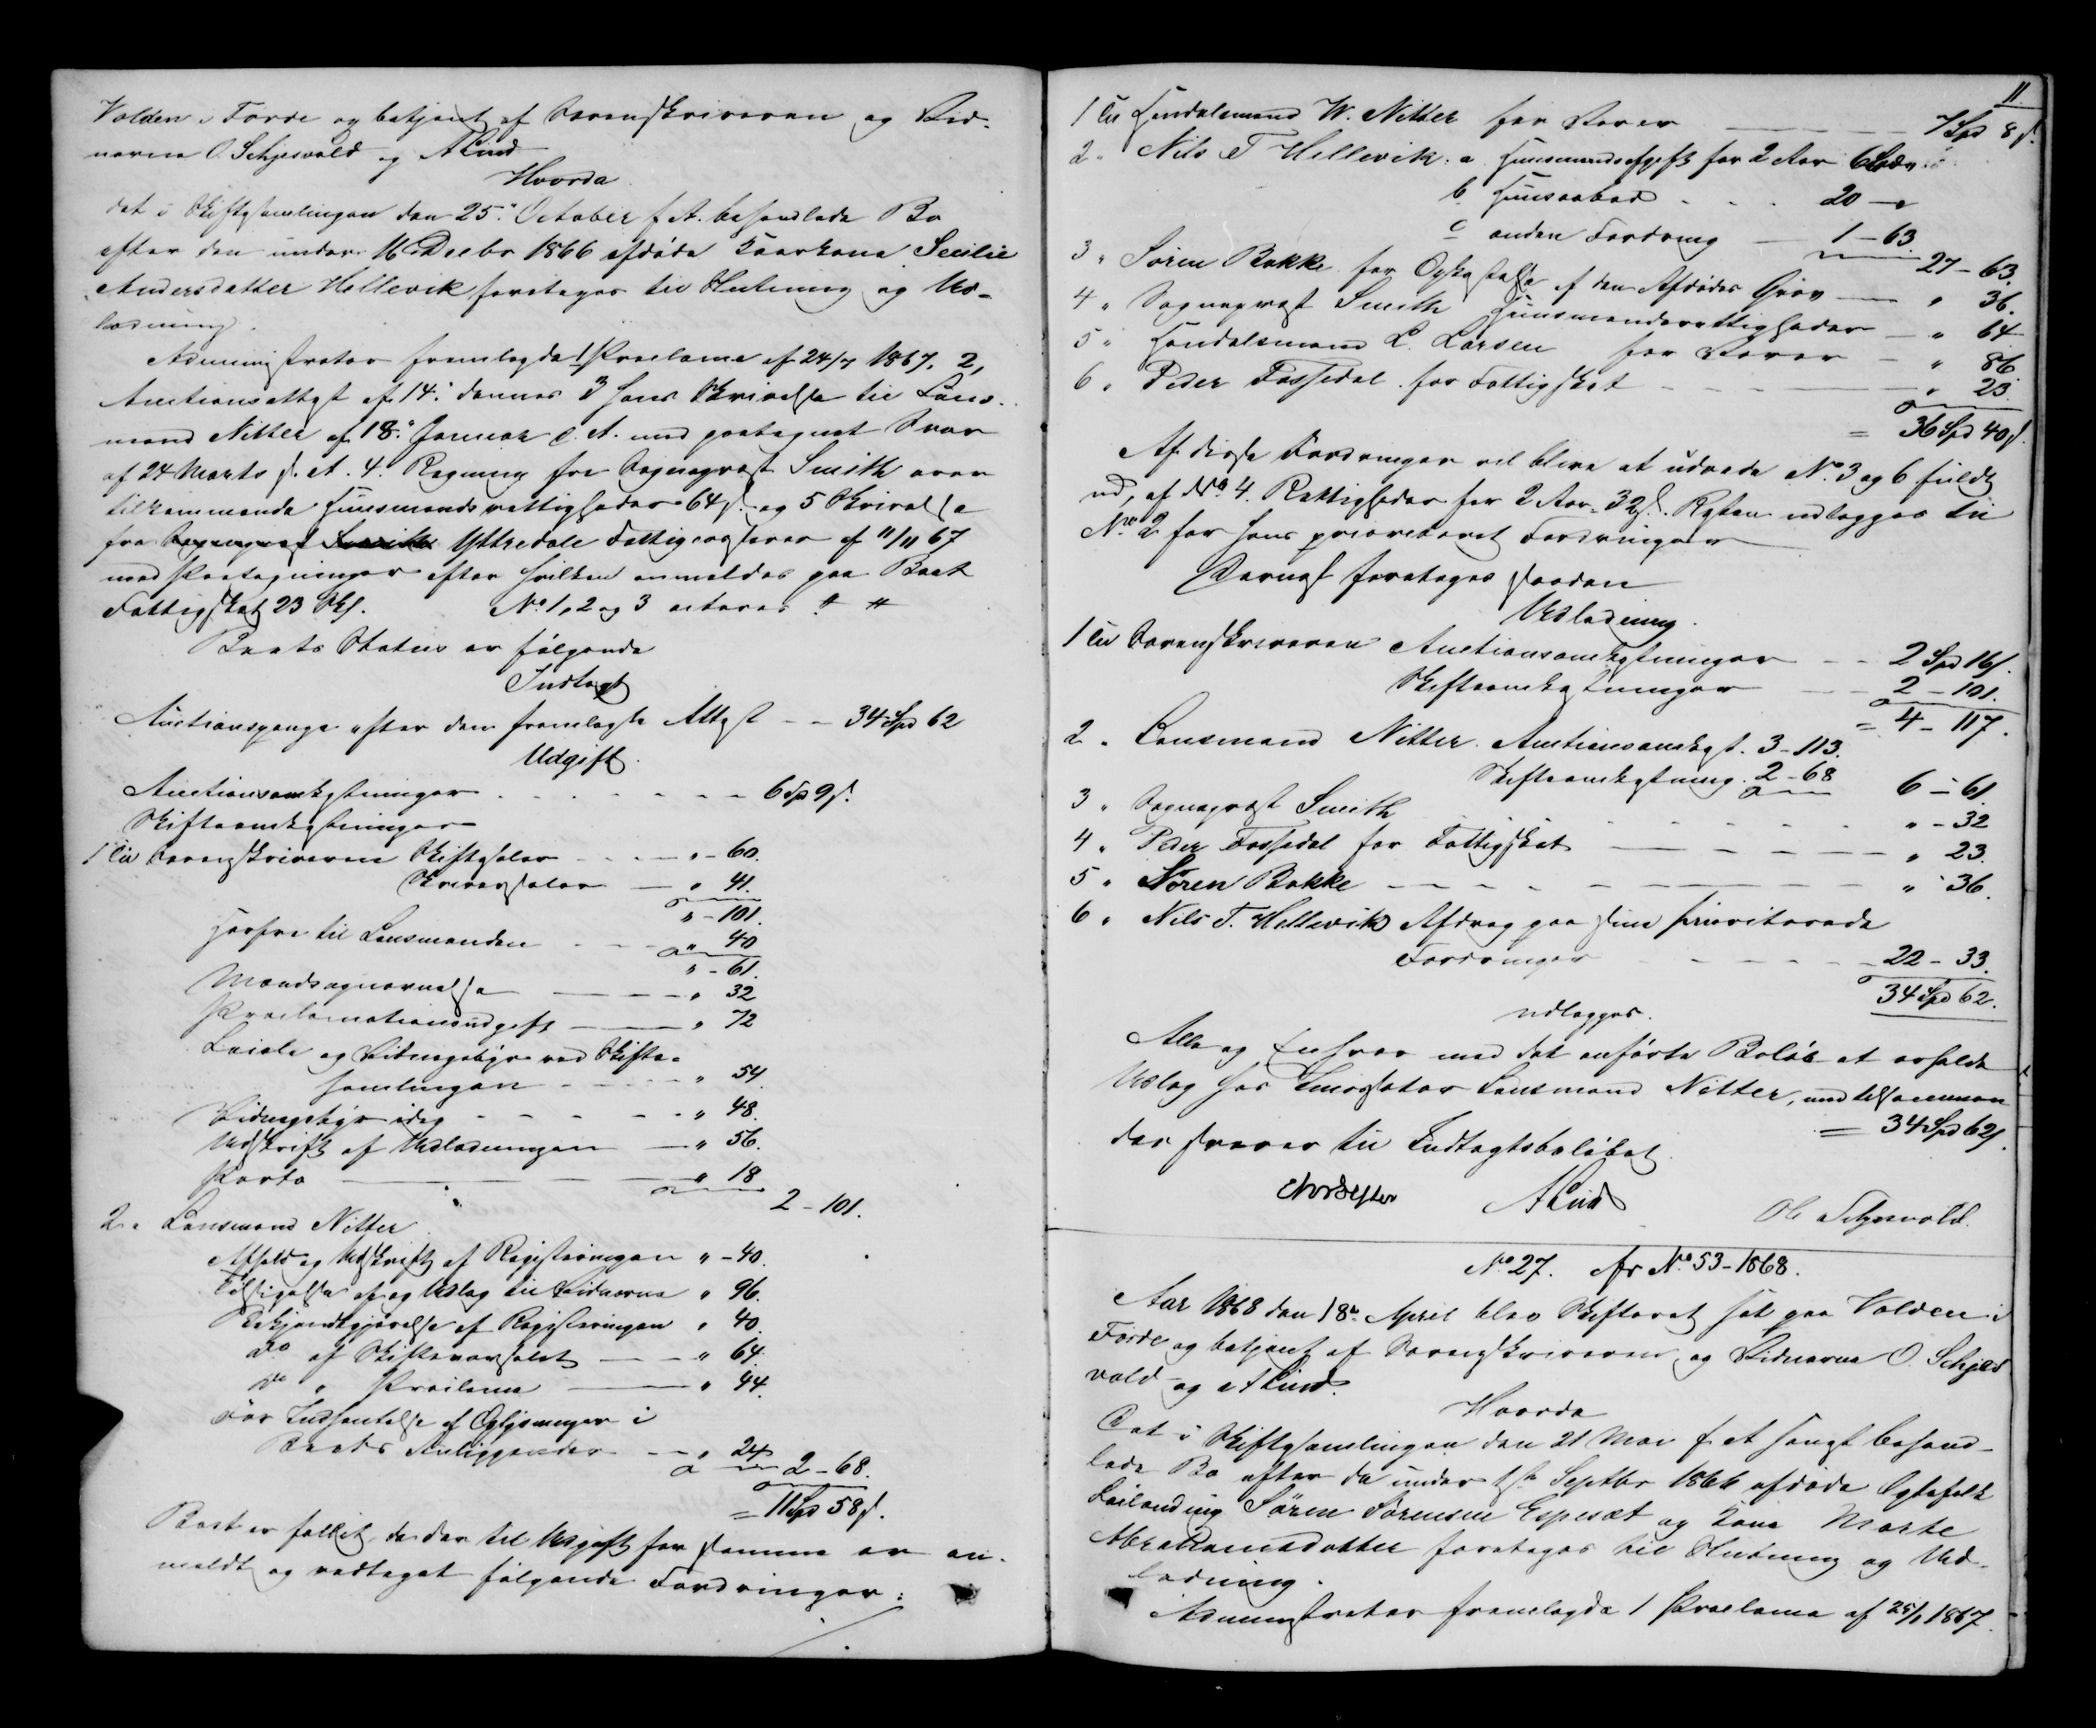 Volden i Førde og betjent af Sorenskriveren og Vid-
nerne O. Schjesvold og A Lind
Hvorda
det i Skiftesamlingen den 25de October f. A. behandlede Bo
efter den under 16 Decbr 1866 afdøde Kaarkone Secilie
Andersdatter Hellevik foretages til Slutning og Ud-
lodning.
Administrator fremlagde 1 Proclama af 24/7 1867. 2,
Auctionsattest af 14de dennes 3 hans Skrivelse til Læns-
mand Nitter af 18de Januar d. A. med paategnet Svar
af 24 Marts s. A. 4. Regning fra Sognepræst Smith over
tilkommende Huusmandsrettigheder 64 s. og 5 Skrivelse
fra Sognepræst Smith Yttredale Fattigcasserer af 11/11 67
med Paategninger efter hvilken anmeldes paa Boet
Fattigskat 23 Skl. No 1, 2 og 3 acteres # #
Boets Status er følgende
Indtægt
Auctionspenge efter den fremlagte Attest - - 34 Spd 62
Udgift.
Auctionsomkostninger - - - - - 6 Sp 9 s.
Skifteomkostninger
1 Til Sorenskriveren Skiftesalær - - - " - 60.
Skriversalær — " 41.
" - 101.
Herfra til Lensmanden - - - " 40
" - 61.
Mandsopnævnelse — — — " 32
Proclamationsudgift — — " 72
Locale og Vidnegebyr ved Skifte-
samlingen - - - - " 54.
Vidnegebyr idag - - - - - " 48.
Udskrift af Udlodningen — " 56.
Porto — — — — " 18
2 - 101.
2 " Lensmand Nitter.
Afhold og Udskrift af Registreringen " - 40.
Tilsigelse af og Udlæg til Vidnerne " 96.
Bekjendtgjørelse af Registreringen " 40.
do af Skiftevarselet — — " 64.
do " Proclama — — " 44.
For Indsendelse af Oplysninger i
Boets Anliggender - - " 24
2 - 68.
= 11 Spd 58 s.
Boet er fallit, da der til Udgift for samme er an-
meldt og vedtaget følgende Fordringer:
11
1 Til Handelsmand W. Nitter for Varer — — — 7 Spd 8 s.
2 " Nils T Hellevik: a. Huusmandsafgift for 2 Aar 6 Spd "
b. Huusaabod - - - 20 — "
c anden Fordring — 1 - 63.
27 - 63.
3 " Søren Bakke for Opkastelse af den Afdødes Grav — " 36.
4 " Sognepræst Smith Huusmandsrettigheder — " 64
5 " Handelsmand L. Larsen for Varer — " 86
6 " Peder Fossedal for Fattigskat - - - — " 23.
= 36 Spd 40 s.
Af disse Fordringer vil blive at udrede No 3 og 6 fuldt
ud, af No 4. Rettigheder for 2 Aar 32 s. Resten udlægges til
No 2 for hans prioriteret Fordringer
Dernæst foretages saadan
Udlodning.
1 Til Sorenskriveren Auctionsomkostninger - - 2 Spd 16 s.
Skifteomkostninger - - 2 - 101.
= 4 - 117.
2 " Lensmand Nitter. Auctionsomkost. 3 - 113.
Skifteomkostning. 2 - 68
6 - 61
3 " Sognepræst Smith - - - - - " - 32
4 " Peder Fossedal for Fattigskat — — — — " 23.
5 " Søren Bakke - - - - — — — " 36.
6 " Nils T. Hellevik Afdrag paa sine prioriterede
Fordringer - - - - 22 - 33.
34 Spd 62.
udlægges.
Alle og Enhver med det anførte Beløb at erholde
Udlæg hos Incassator Lensmand Nitter, med tilsammen
= 34 Spd 62 s.
der svarer til Indtægtsbeløbet.
A Lind
Ol Schjesvold.
No 27. cfr No 53-1868.
Aar 1868 den 18de April blev Skifteret sat paa Volden i
Førde og betjent af Sorenskriveren og Vidnerne O. Schjes
vold og A Lind.
Hvorda
Det i Skiftesamlingen den 21 Mai f. A. først behand-
lede Bo efter de under 1ste Septbr 1866 afdøde Egtefolk
Søren Sørensen Espesæt og Kone Marte
Abrahamsdatter foretages til Slutning og Ud-
lodning.
Administrator fremlagde 1 Proclama af 25/1 1867.